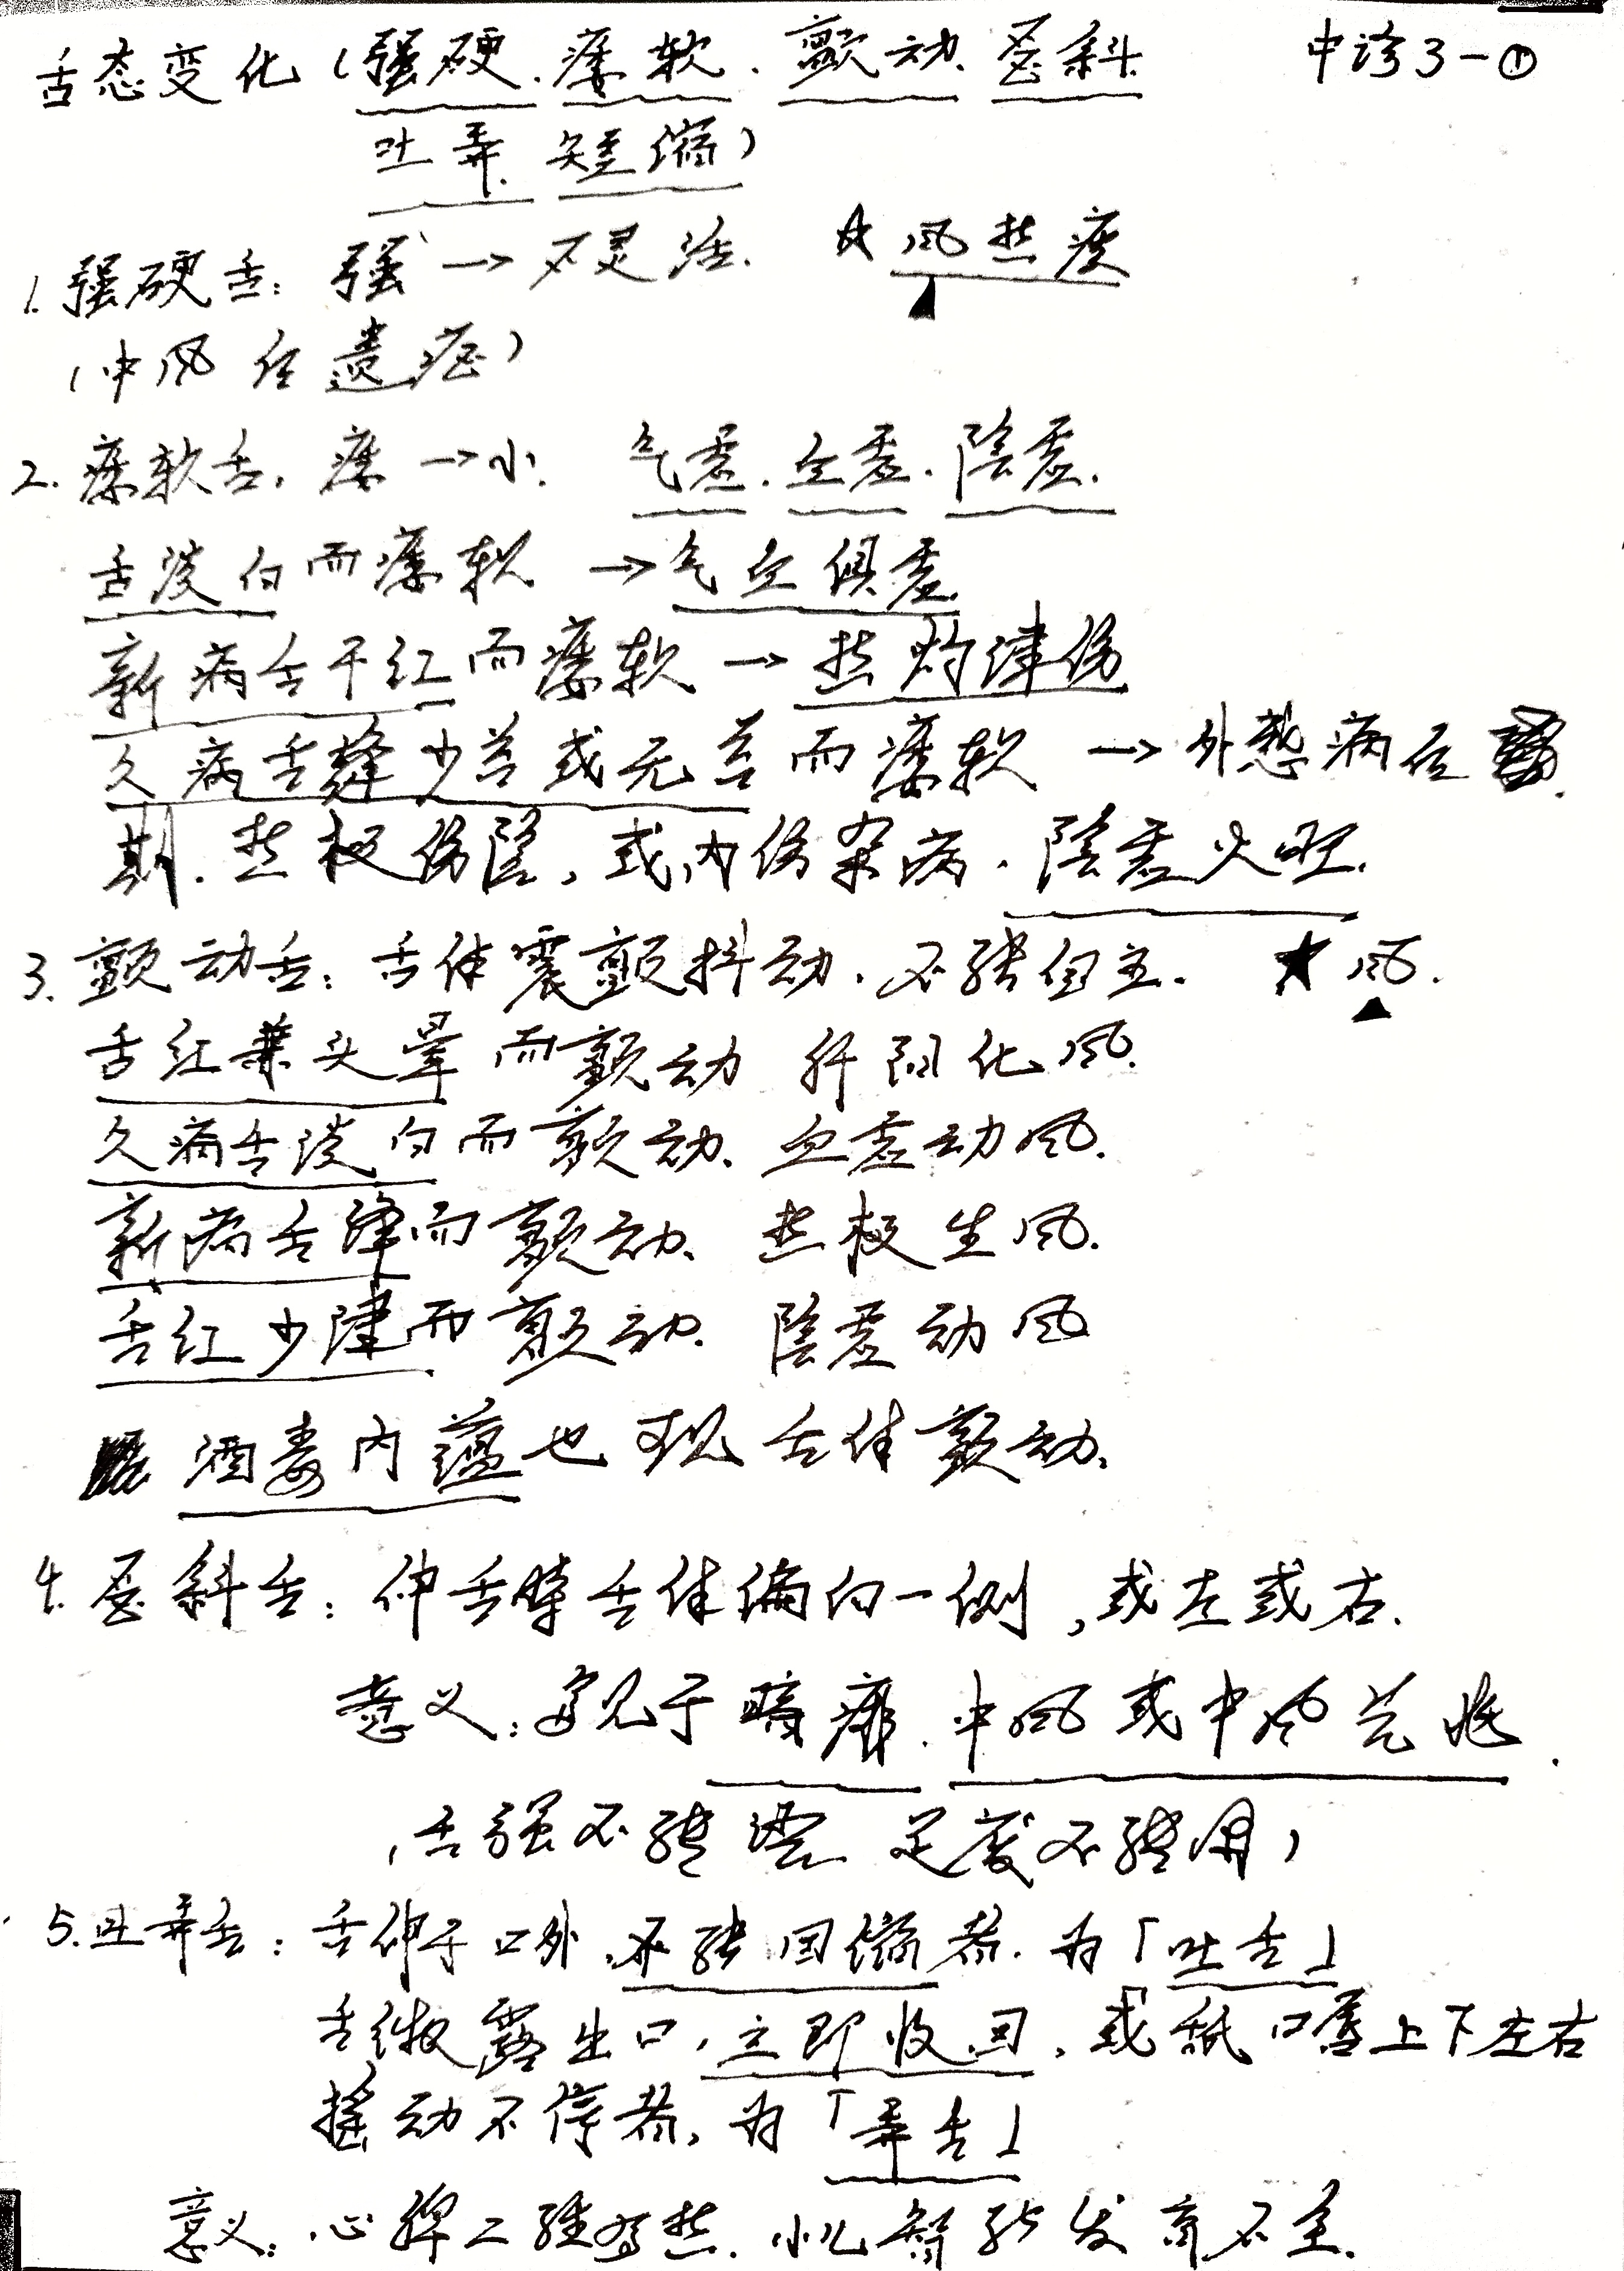 舌态变化(强硬.痿软.颤动.歪斜 中诊3-①
吐弄.短缩)
1.强硬舌:强→不灵活. ☆风热痰
(中风后遗症)
2.痿软舌.痿→小. 气虚.血虚.陰虚.
舌淡白而痿软→气血俱虚
新病舌干红而痿软→热灼津伤
久病舌绛少苔或无苔而痿软→外感病后
期.热极伤陰,或内伤杂病.陰虚火旺.
3.颤动舌:舌体震颤抖动.不能自主. ★风.
舌红兼头晕而颤动 肝阳化风.
久病舌淡白而颤动.血虚动风.
新病舌绛而颤动.热极生风.
舌红少津而颤动.陰虚动风
酒毒内蕴也可见舌体颤动.
4.歪斜舌:伸舌时舌体偏向一侧,或左或右.
意义:多见于喑痱.中风或中风先兆.
(舌强不能语 足废不能用)
5.吐弄舌:舌伸于口外,不能回缩者.为「吐舌」
舌微露出口,立即收回,或舐口唇上下左右
摇动不停者,为「弄舌」
意义:心脾二经有热.小儿智能发育不全.